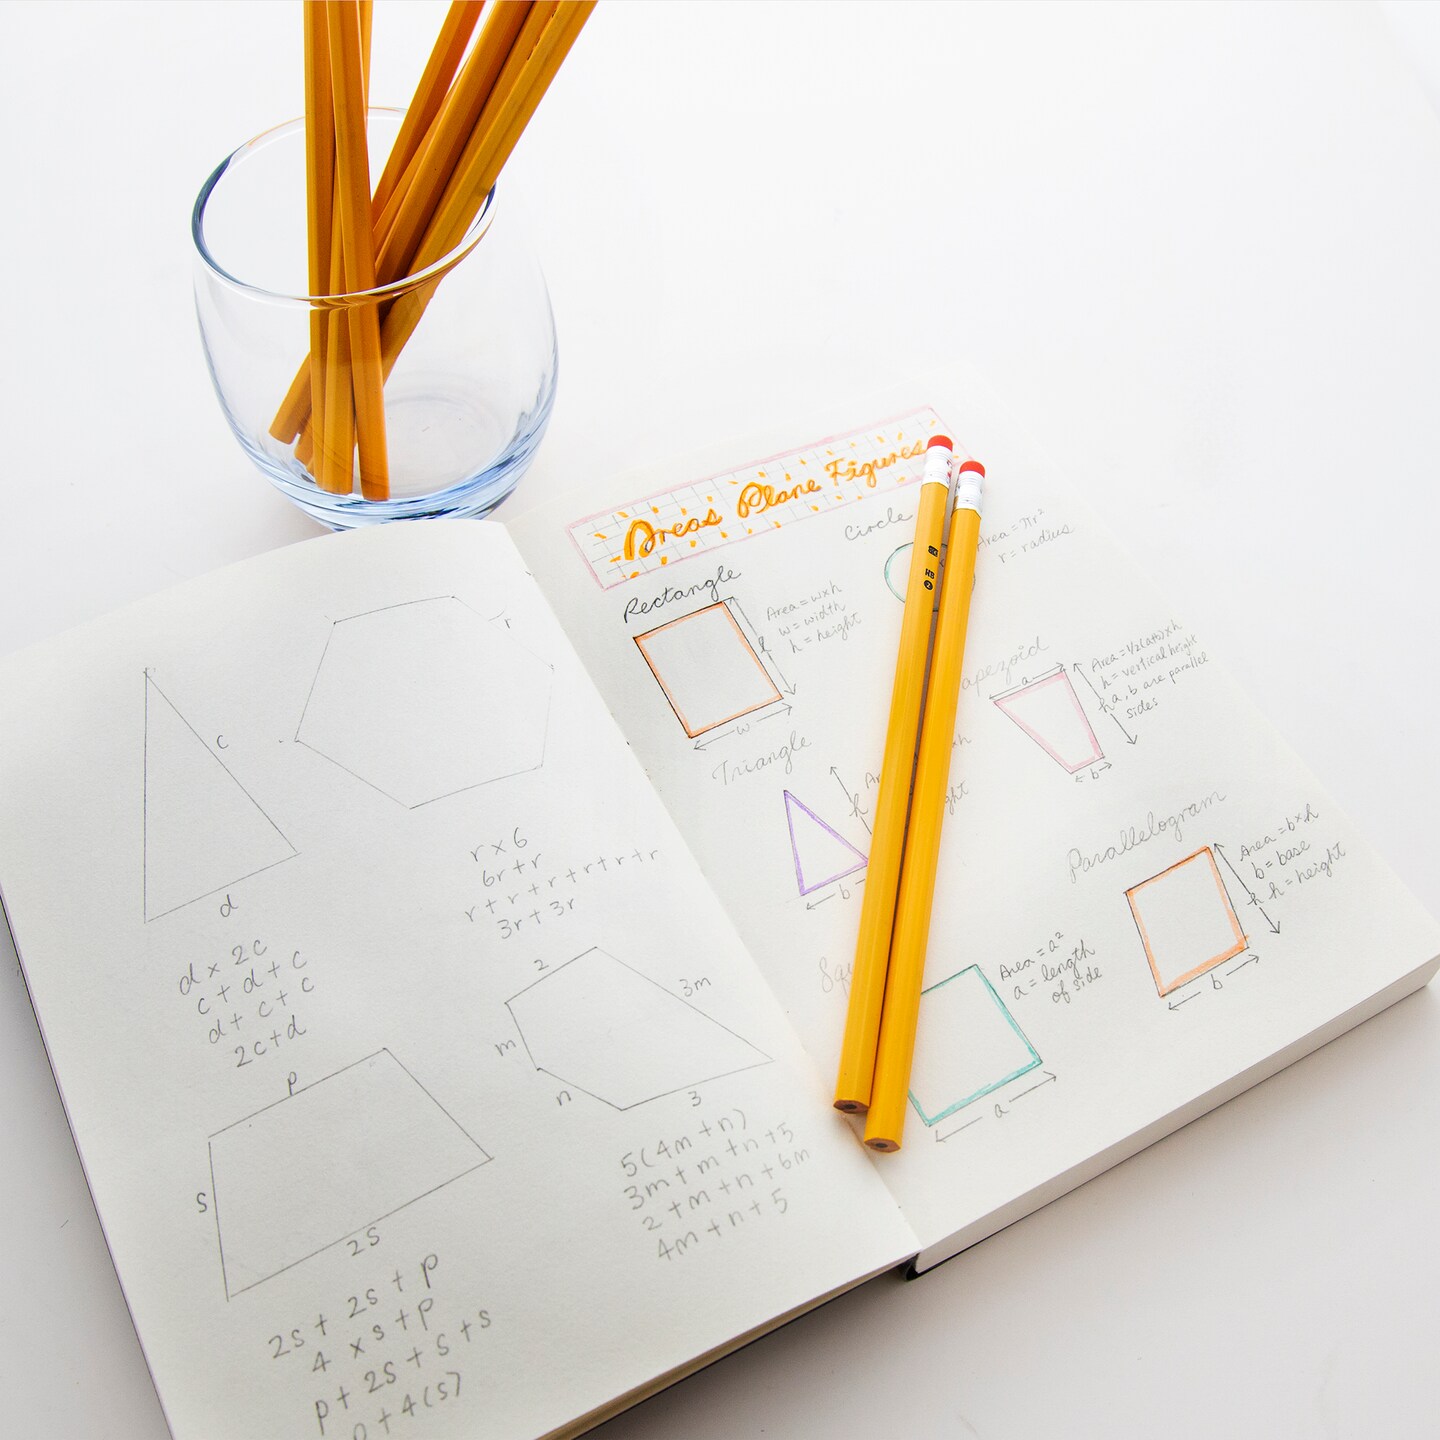 r
c
d
d × 2c
c + d + c
d + c + c
2c + d
r × 6
6r + r
r + r + r + r + r + r
3r + 3r
p
s
2s
2s + 2s + p
4 × s + p
p + 2s + s + s
p + 4(s)
2
3m
m
n
3
5(4m + n)
3m + m + n + 5
2 + m + n + 6m
4m + n + 5
Areas Plane Figures
Rectangle
Area = w×h
w = width
h = height
w
Circle
Area = πr²
r = radius
HB
2
Triangle
h
b
apezoid
Area = 1/2(a+b)×h
h = vertical height
a, b are parallel
sides
a
h
b
Squ
Area = a²
a = length
of side
a
Parallelogram
Area = b×h
b = base
h = height
h
b